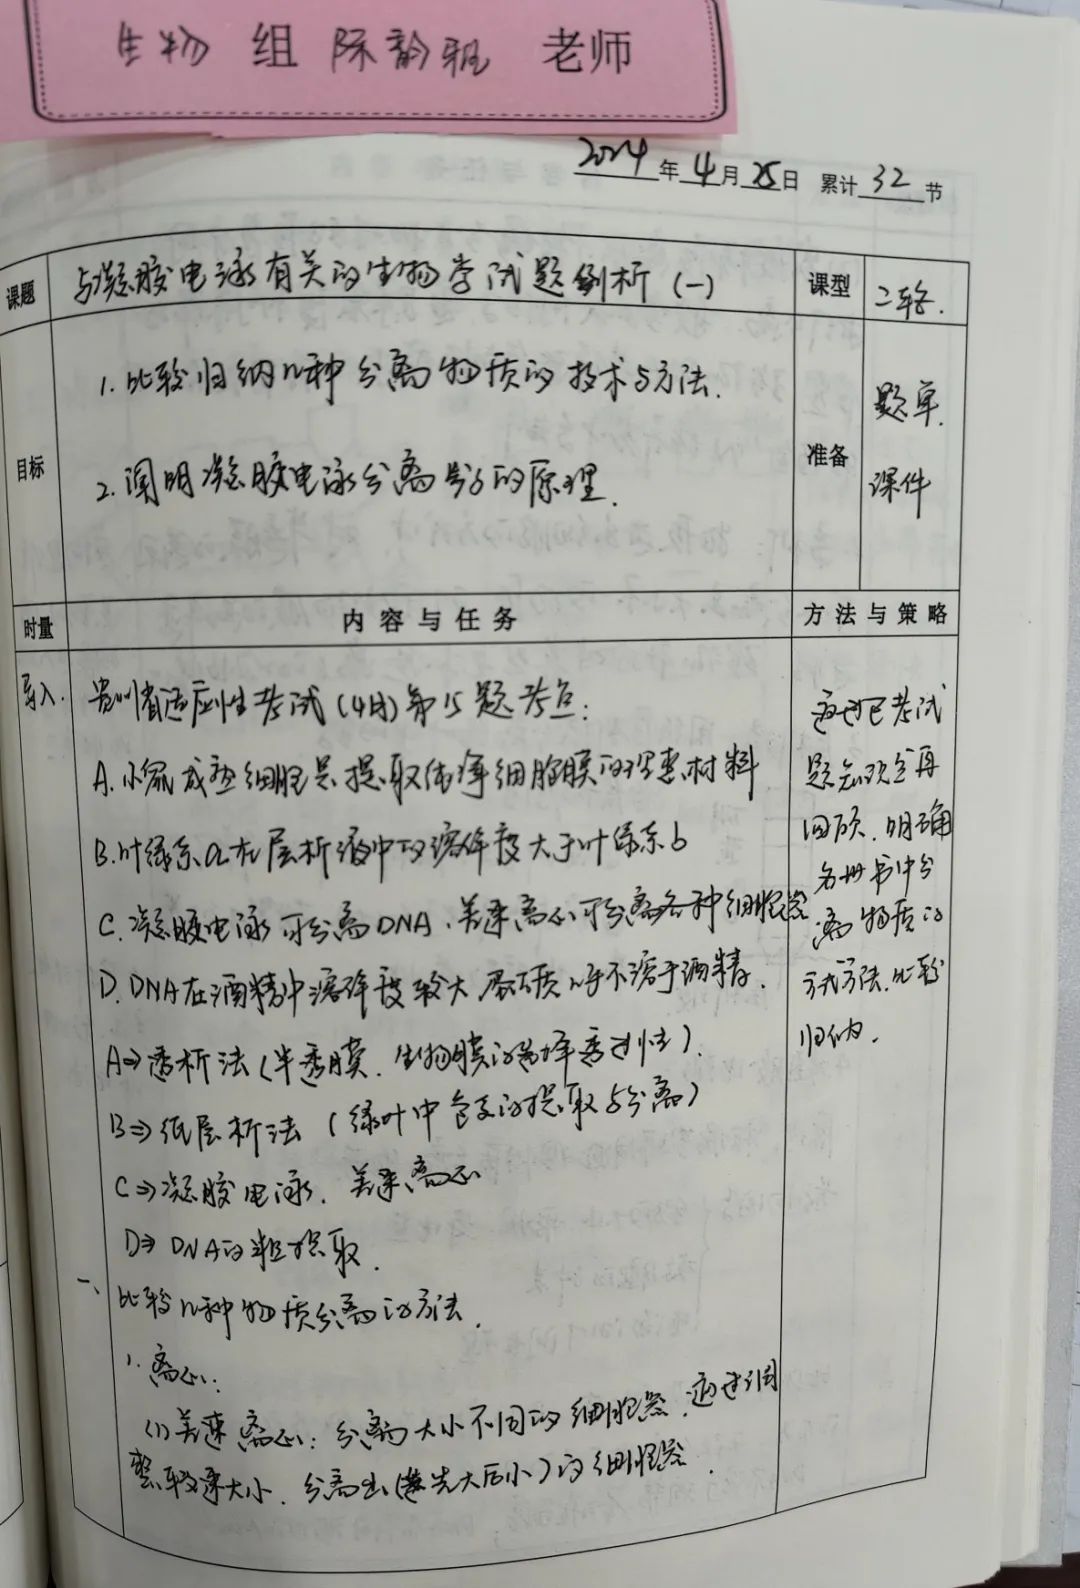 生物 组 陈韵雅 老师
2024年4月25日 累计32节
课题 与凝胶电泳有关的生物学试题例析(一) 课型 二轮.
目标 1. 比较归纳几种分离物质的技术与方法.
2. 阐明凝胶电泳分离分子的原理.
准备 题单. 课件
时量 内容与任务 方法与策略
导入. 贵州省适应性考试(4月)第15题考点:
A. 小鼠成熟细胞是提取纯净细胞膜的理想材料
B. 叶绿素a在层析液中的溶解度大于叶绿素b
C. 凝胶电泳可分离DNA、差速离心可分离各种细胞器
D. DNA在酒精中溶解度较大,蛋白质几乎不溶于酒精.
A⇒透析法(半透膜、生物膜的选择透过性).
B⇒纸层析法(绿叶中色素的提取与分离)
C⇒凝胶电泳、差速离心
D⇒DNA的粗提取.
一、比较几种物质分离的方法.
1. 离心:
(1)差速离心:分离大小不同的细胞器.通过调
整转速大小、分离出(先大后小)的细胞器.
通过已考试
题知识点再
回顾.明确
各册书中分
离物质的
方法.比较
归纳.